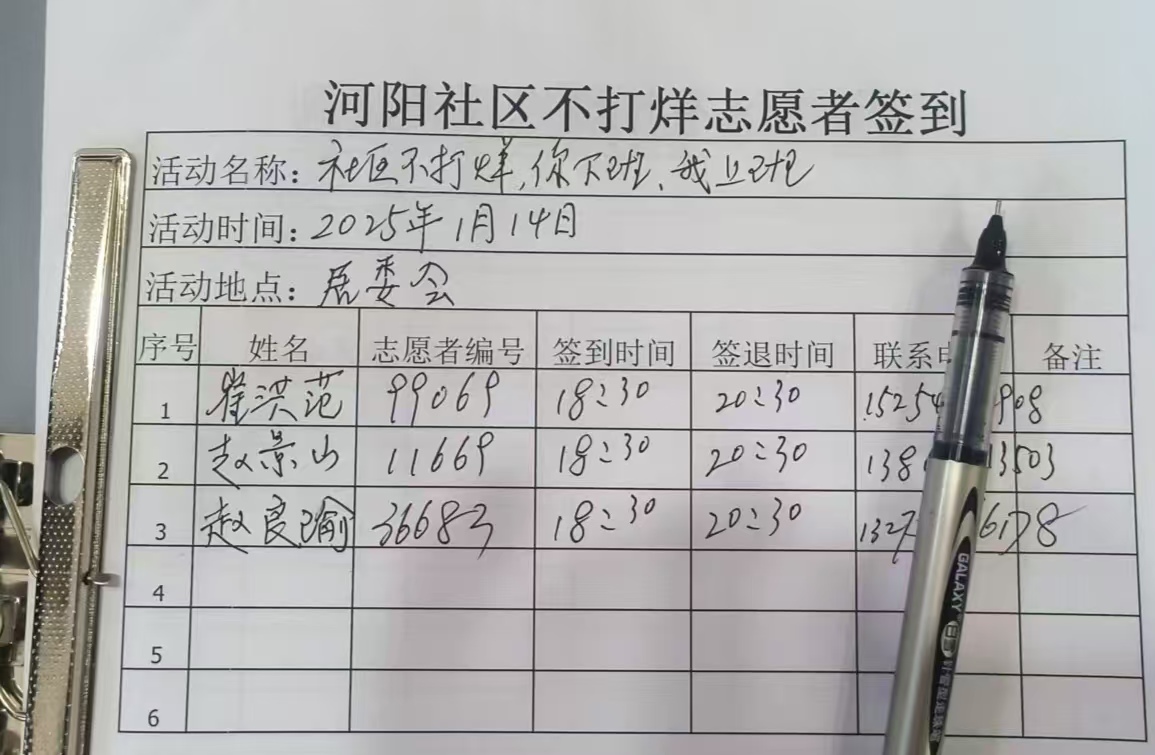 河阳社区不打烊志愿者签到
活动名称：社区不打烊，你下班、我上班
活动时间：2025年1月14日
活动地点：居委会
序号 姓名 志愿者编号 签到时间 签退时间 联系 备注
1 崔洪范 99069 18:30 20:30 15254 908
2 赵景山 11669 18:30 20:30 138 13503
3 赵良瑜 36683 18:30 20:30 1327 6178
4
5
6
GALAXY